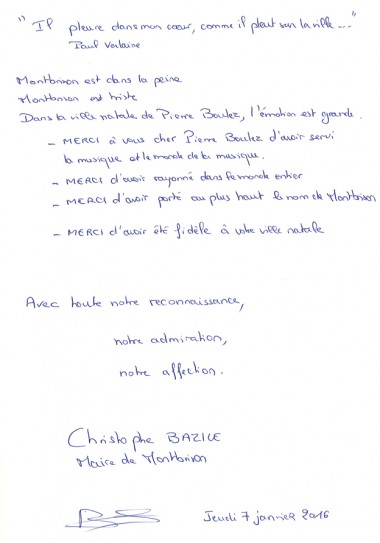 " Il pleure dans mon cœur, comme il pleut sur la ville .... "
Paul Verlaine
Montbrison est dans la peine
Montbrison est triste
Dans la ville natale de Pierre Boulez, l'émotion est grande.
- MERCI à vous cher Pierre Boulez d'avoir servi
la musique et le monde de la musique.
- MERCI d'avoir rayonné dans le monde entier
- MERCI d'avoir porté au plus haut le nom de Montbrison
- MERCI d'avoir été fidèle à votre ville natale
Avec toute notre reconnaissance,
notre admiration,
notre affection.
Christophe BAZILE
Maire de Montbrison
Jeudi 7 janvier 2016